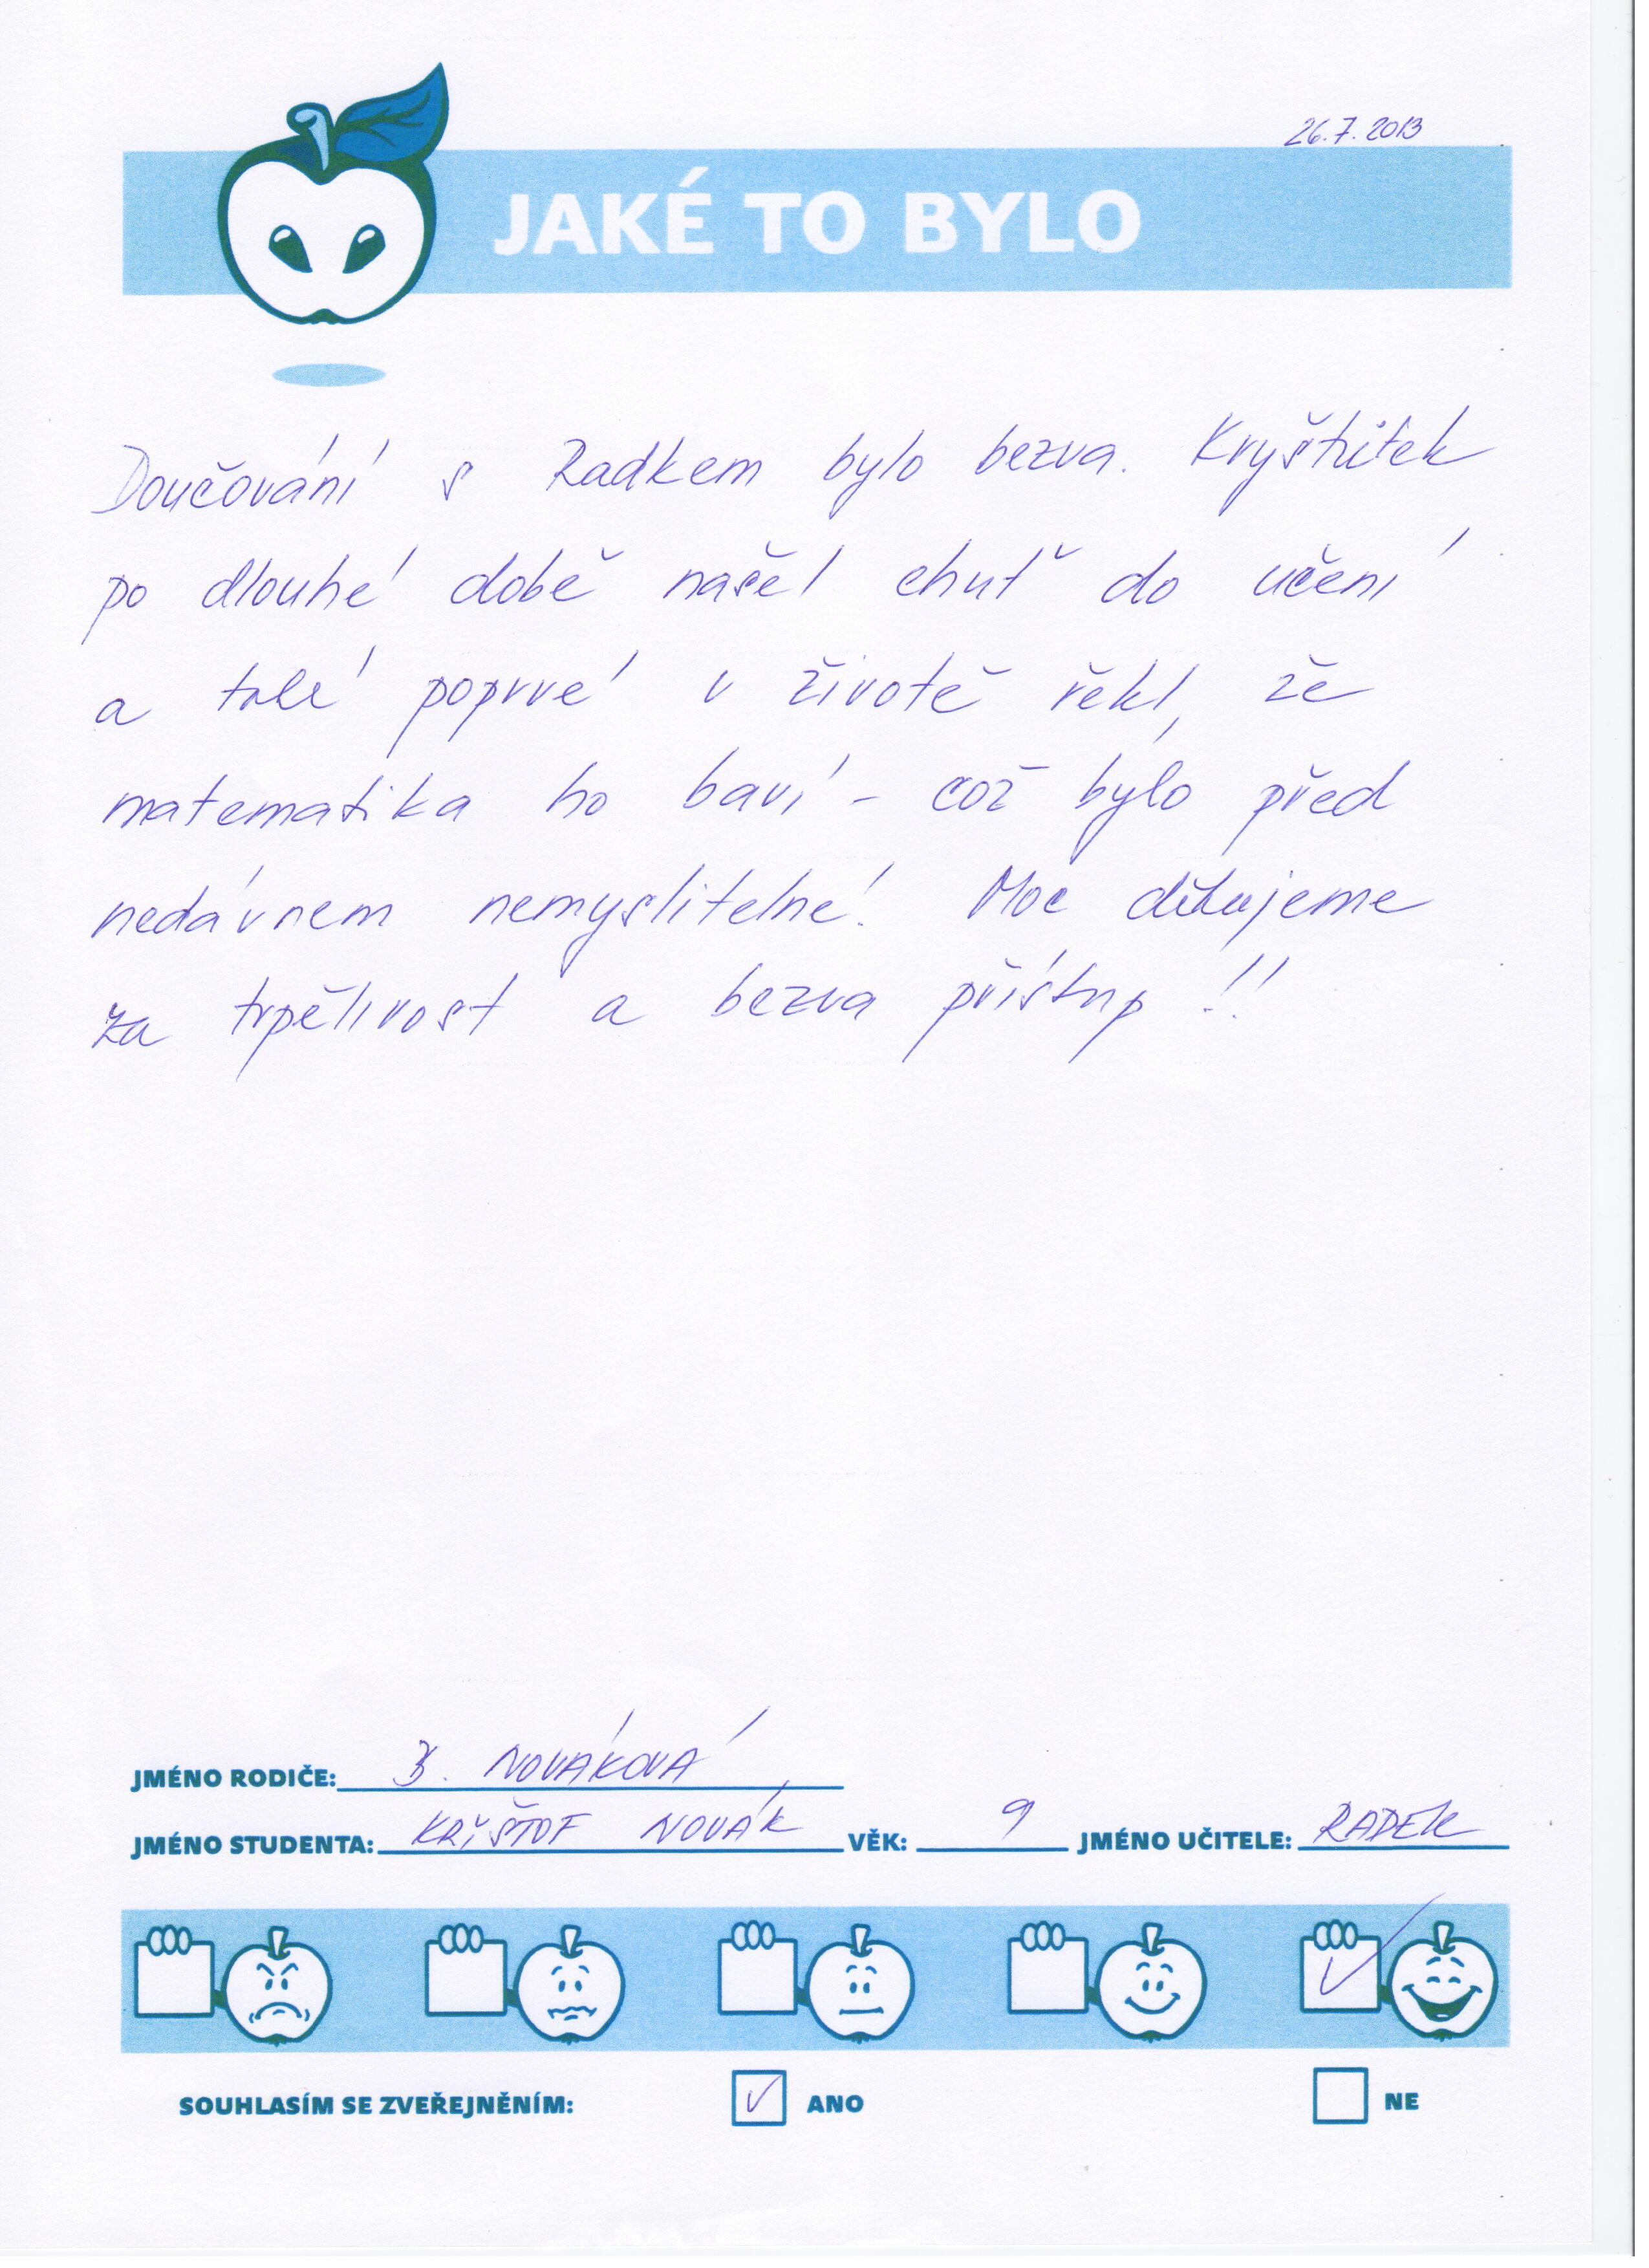 26.7.2013
JAKÉ TO BYLO
Doučování s Radkem bylo bezva. Kryštůtek
po dlouhé době našel chuť do učení
a také poprvé v životě řekl, že
matematika ho baví - což bylo před
nedávnem nemyslitelné! Moc děkujeme
za trpělivost a bezva přístup!!
JMÉNO RODIČE: B. NOVÁKOVÁ
JMÉNO STUDENTA: KRYŠTOF NOVÁK VĚK: 9 JMÉNO UČITELE: RADEK
SOUHLASÍM SE ZVEŘEJNĚNÍM: ✓ ANO NE